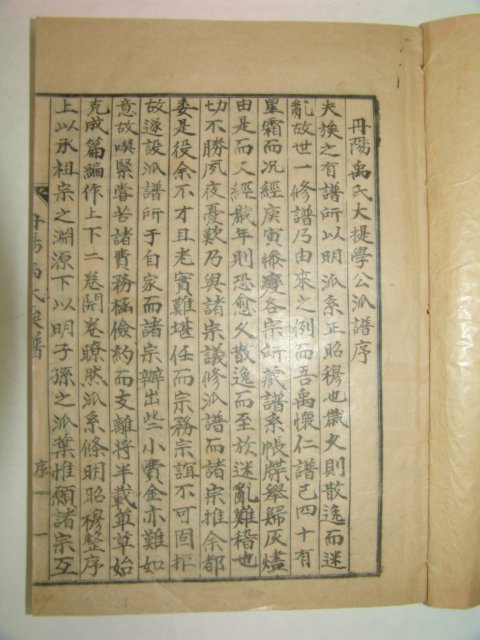 丹陽禹氏大提學公派譜序
夫族之有譜所以明派系正昭穆也歲久則散逸而迷
亂故世一修譜乃由來之例而吾禹懷仁譜已四十有
星霜而況經庚寅慘變各宗所藏譜系帳牒擧歸灰燼
由是而又經歲年則恐愈久散逸而至於迷亂難稽也
切不勝夙夜憂歎乃與諸宗議修派譜而諸宗推余都
委是役余不才且老實難堪任而宗務宗誼不可固拒
故遂設派譜所于自家而諸宗辦出些小費金亦難如
意故喫緊嘗苦諸費務極儉約而支離將半載草草始
克成篇編作上下二卷開卷瞭然派系條明昭穆整序
上以承祖宗之淵源下以明子孫之派葉惟願諸宗互
丹陽禹氏族譜 序 一